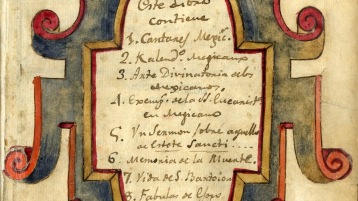 Este Libro
contiene
1. Cantares Mexic.
2. Kalend.º Megicano
3. Arte Divinatoria de los
Mexicanos.
4. Exemp. de la SS. Eucarist.
en Megicano
5. Vn Sermon sobre aquello
de Estote Sancti....
6. Memoria de la Muerte.
7. Vida de S. Bartolom
8. Fabulas de Esopo